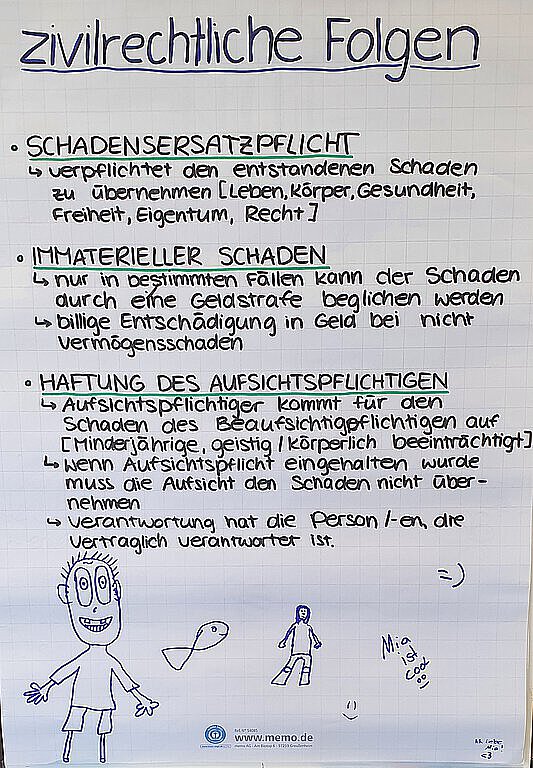 zivilrechtliche Folgen
• SCHADENSERSATZPFLICHT
↳ verpflichtet den entstandenen Schaden
zu übernehmen [Leben, Körper, Gesundheit,
Freiheit, Eigentum, Recht]
• IMMATERIELLER SCHADEN
↳ nur in bestimmten Fällen kann der Schaden
durch eine Geldstrafe beglichen werden
↳ billige Entschädigung in Geld bei nicht
vermögensschaden
• HAFTUNG DES AUFSICHTSPFLICHTIGEN
↳ Aufsichtspflichtiger kommt für den
Schaden des Beaufsichtigpflichtigen auf
[Minderjährige, geistig / körperlich beeinträchtigt]
↳ wenn Aufsichtspflicht eingehalten wurde
muss die Aufsicht den Schaden nicht über-
nehmen
↳ verantwortung hat die Person /-en, die
vertraglich verantwortet ist.
=)
Mia
ist
cool
:)
www.memo.de
memo AG · Am Biotop 6 · 97259 Greußenheim
Liebe
Mia!
<3